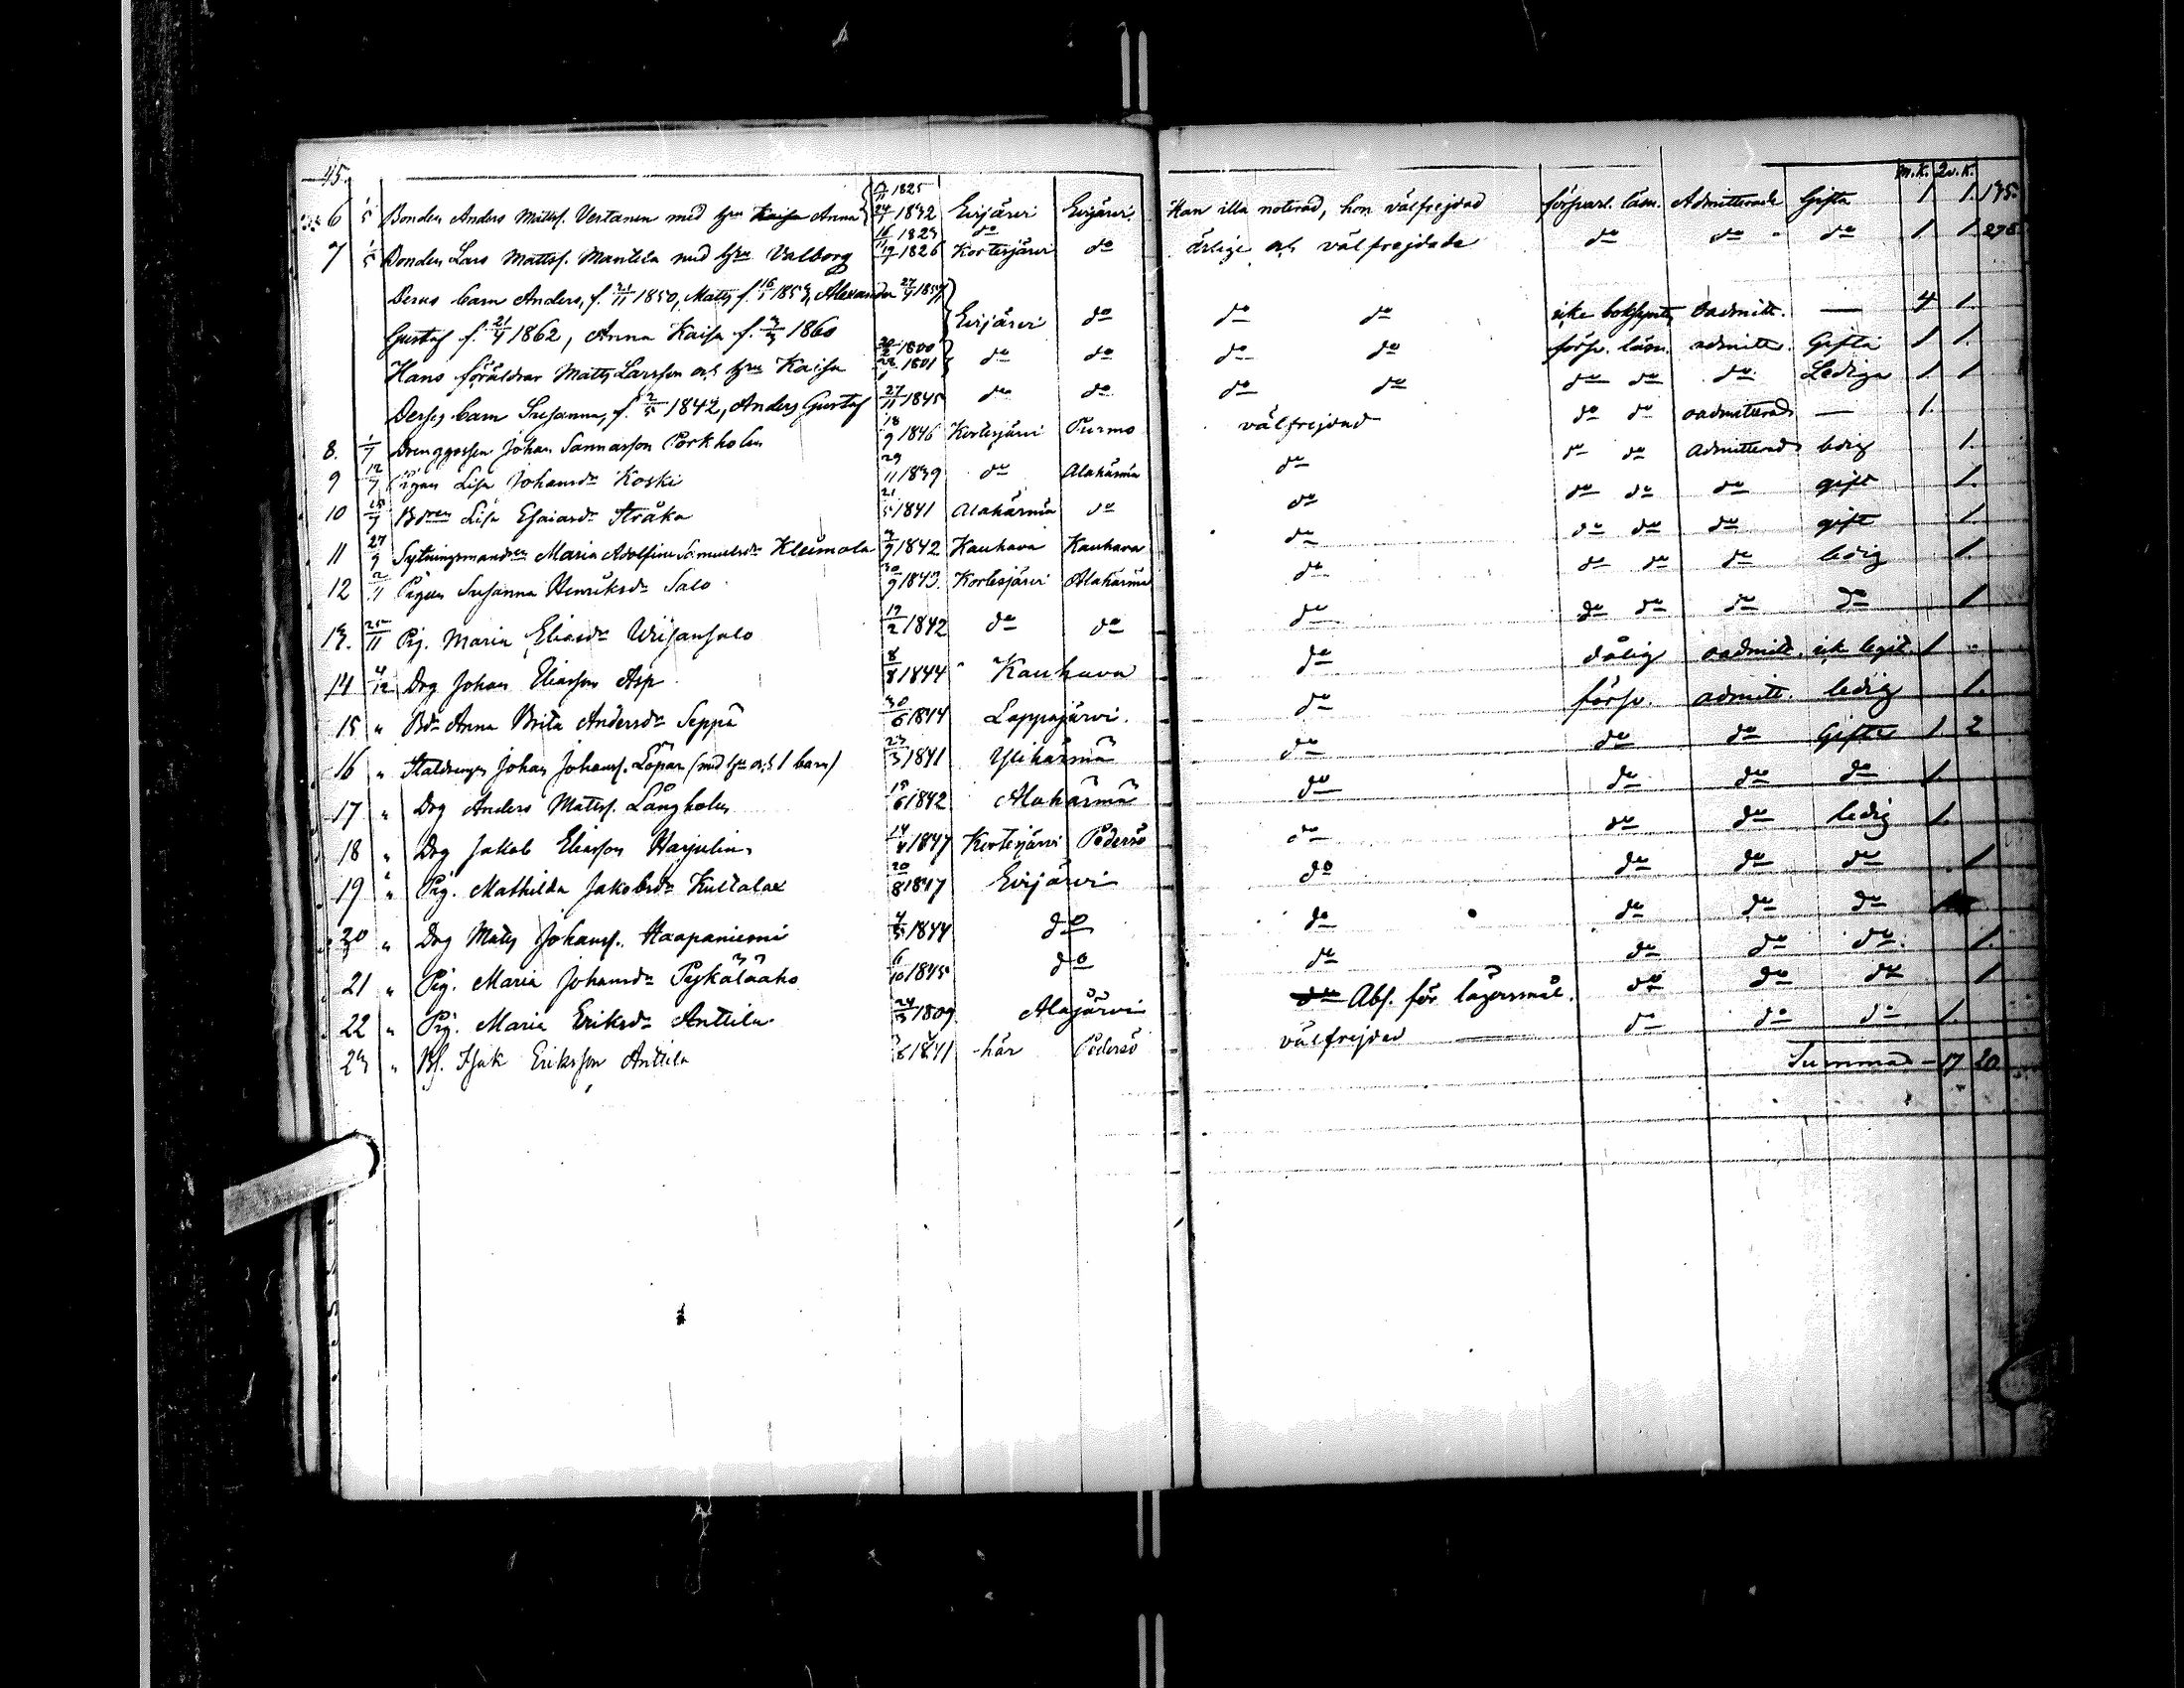 45.
M.K. Qv.K.
6 1/5 Bonden Anders Mattss. Vertanen med hu Kaisa Anna 24/7 1832 Evijärvi Evijärvi Han illa noterad, hon välfrejdad försvarl. läsn. Admitterade Gifta 1 1. 175
1825
7 1/5 Bonden Lars Mattss. Mantila med hu Valborg 19/7 1826 Kortesjärvi do ärlige och välfrejdade do do do 1 1 278
Deras barn Anders, f. 21/11 1850, Matts f. 16/1 1854, Alexander
Gustaf f. 21/4 1862, Anna Kaisa f. 3/3 1860 Evijärvi do do do icke oadmitt. — 4 1.
Hans föräldrar Matts Larsson och hu Kaisa 1800 1801 do do do do försv. läsn. admitt. Gifta 1 1.
Derass barn Susanna, f. 2/5 1842, Anders Gustaf 27/11 1845 do do do do do do do Lediga 1. 1
8. 1/7 Drenggossen Johan Sannasson Porkholm 18/9 1846 Kortesjärvi Purmo välfrejdad do do oadmitterad — 1.
9 12/7 Pigan Lisa Johansdr Koski 29/11 1839 do Alahärmä do do do Admitterad ledig 1.
10 25/7 Lisa Esaiasdr Stråka 21/5 1841 Alahärmä do do do do do gift 1.
11 27/9 Sytningsmandr Maria Adolfina Samuelsdr Kleimola 3/7 1842 Kauhava Kauhava do do do do gift 1.
12 2/11 Pigan Susanna Henriksdr Salo 30/9 1843. Kortesjärvi Alahärmä do do do do ledig 1.
13. 25/11 Pig. Maria Eliasdr Wiisansalo 19/2 1842 do do do do do do do 1
14 4/12 Drg Johan Eliasson Asp 8/8 1844 Kauhava do dålig oadmitt. ick legit. 1
15 " Bdr Anna Brita Andersdr Seppä 30/6 1844 Lappajärvi. do försv. admitt. ledig 1.
16 " Staldrengen Johan Johanss. Löpar (med hu och 1 barn) 23/3 1841 Ylihärmä do do do Gifta 1. 2
17 " Drg Anders Matss. Långholm 15/6 1842 Alahärmä do do do do 1.
18 " Drg Jakob Eliasson Harjulin 14/4 1847 Kortesjärvi Pedersö do do do ledig 1.
19 " Pig. Mathilda Jakobsdr Kultalax 20/8 1847 Evijärvi do do do do 1
20 " Drg Matts Johanss. Haapaniemi 4/5 1844 do do do do do
21 " Pig. Maria Johansdr Pyykäläaho 6/10 1845 do do do do do 1.
22 " Pig. Maria Eriksdr Anttila 24/3 1809 Alajärvi do Abs. för lägersmål. do do do 1
23 " Bs. Isak Eriksson Anttila 1841 här Pedersö välfrejdad — do do do 1.
Summa — 17 20